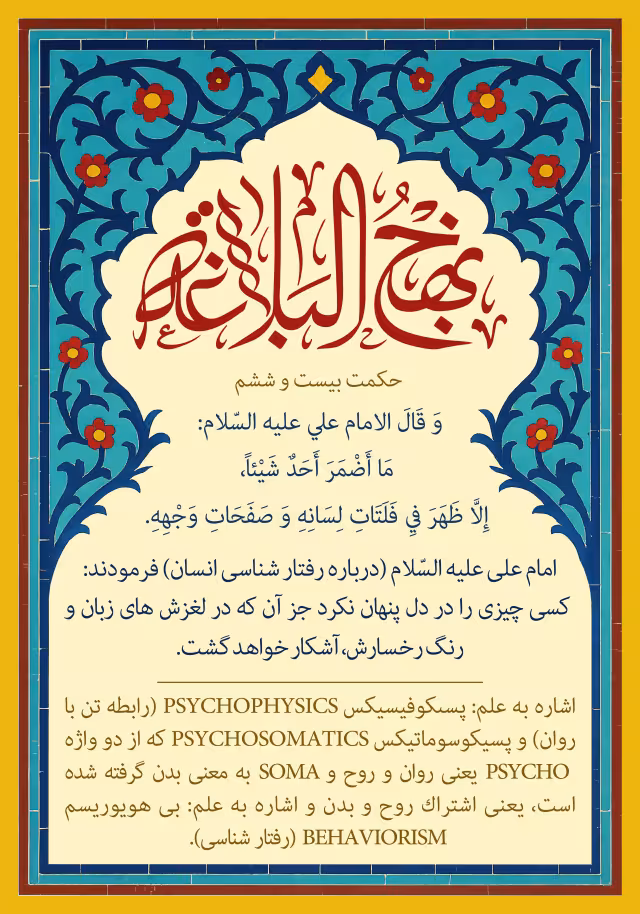 نهج البلاغة
حکمت بیست و ششم
وَ قَالَ الامام علي عليه السّلام:
مَا أَضْمَرَ أَحَدٌ شَيْئاً،
إِلَّا ظَهَرَ فِي فَلَتَاتِ لِسَانِهِ وَ صَفَحَاتِ وَجْهِهِ.
امام علی علیه السّلام (درباره رفتار شناسی انسان) فرمودند:
کسی چیزی را در دل پنهان نکرد جز آن که در لغزش های زبان و
رنگ رخسارش، آشکار خواهد گشت.
اشاره به علم: پسکوفیسیکس PSYCHOPHYSICS (رابطه تن با
روان) و پسیکوسوماتیکس PSYCHOSOMATICS که از دو واژه
PSYCHO یعنی روان و روح و SOMA به معنی بدن گرفته شده
است، یعنی اشتراك روح و بدن و اشاره به علم: بی هویوریسم
BEHAVIORISM (رفتار شناسی).